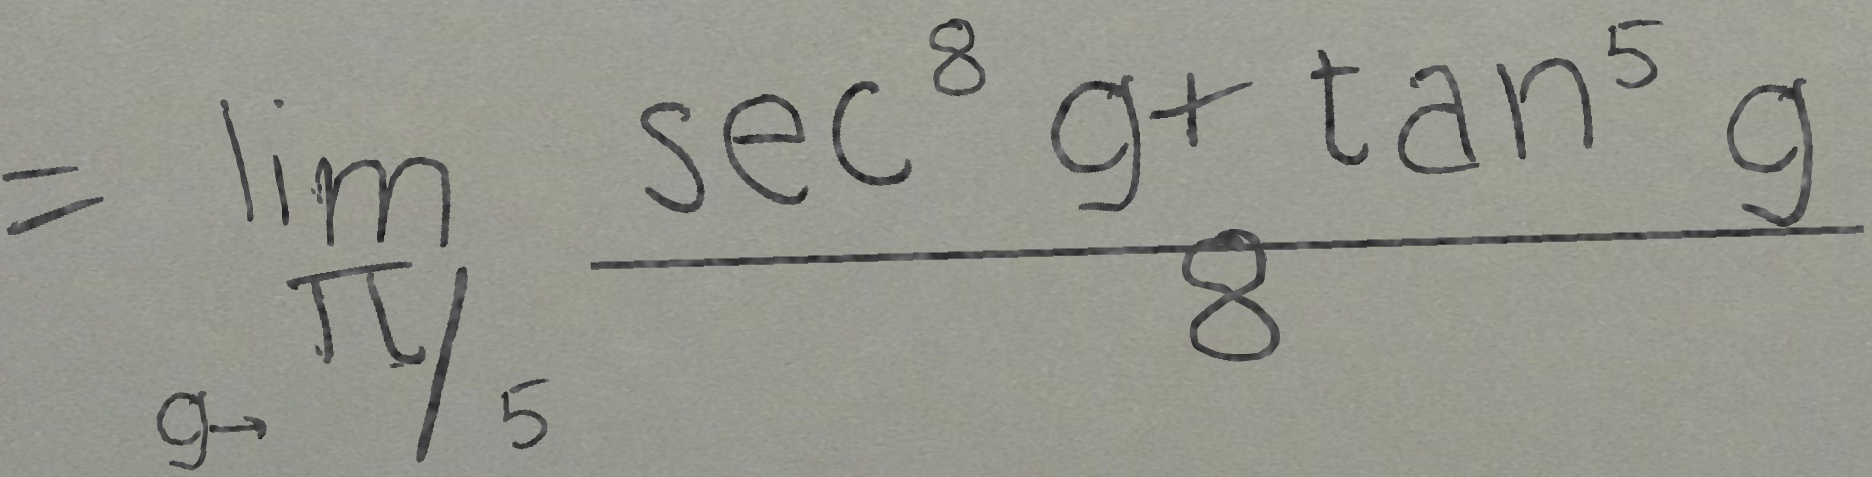 = lim_{g→π/5} \frac{sec^8 g + tan^5 g}{8}